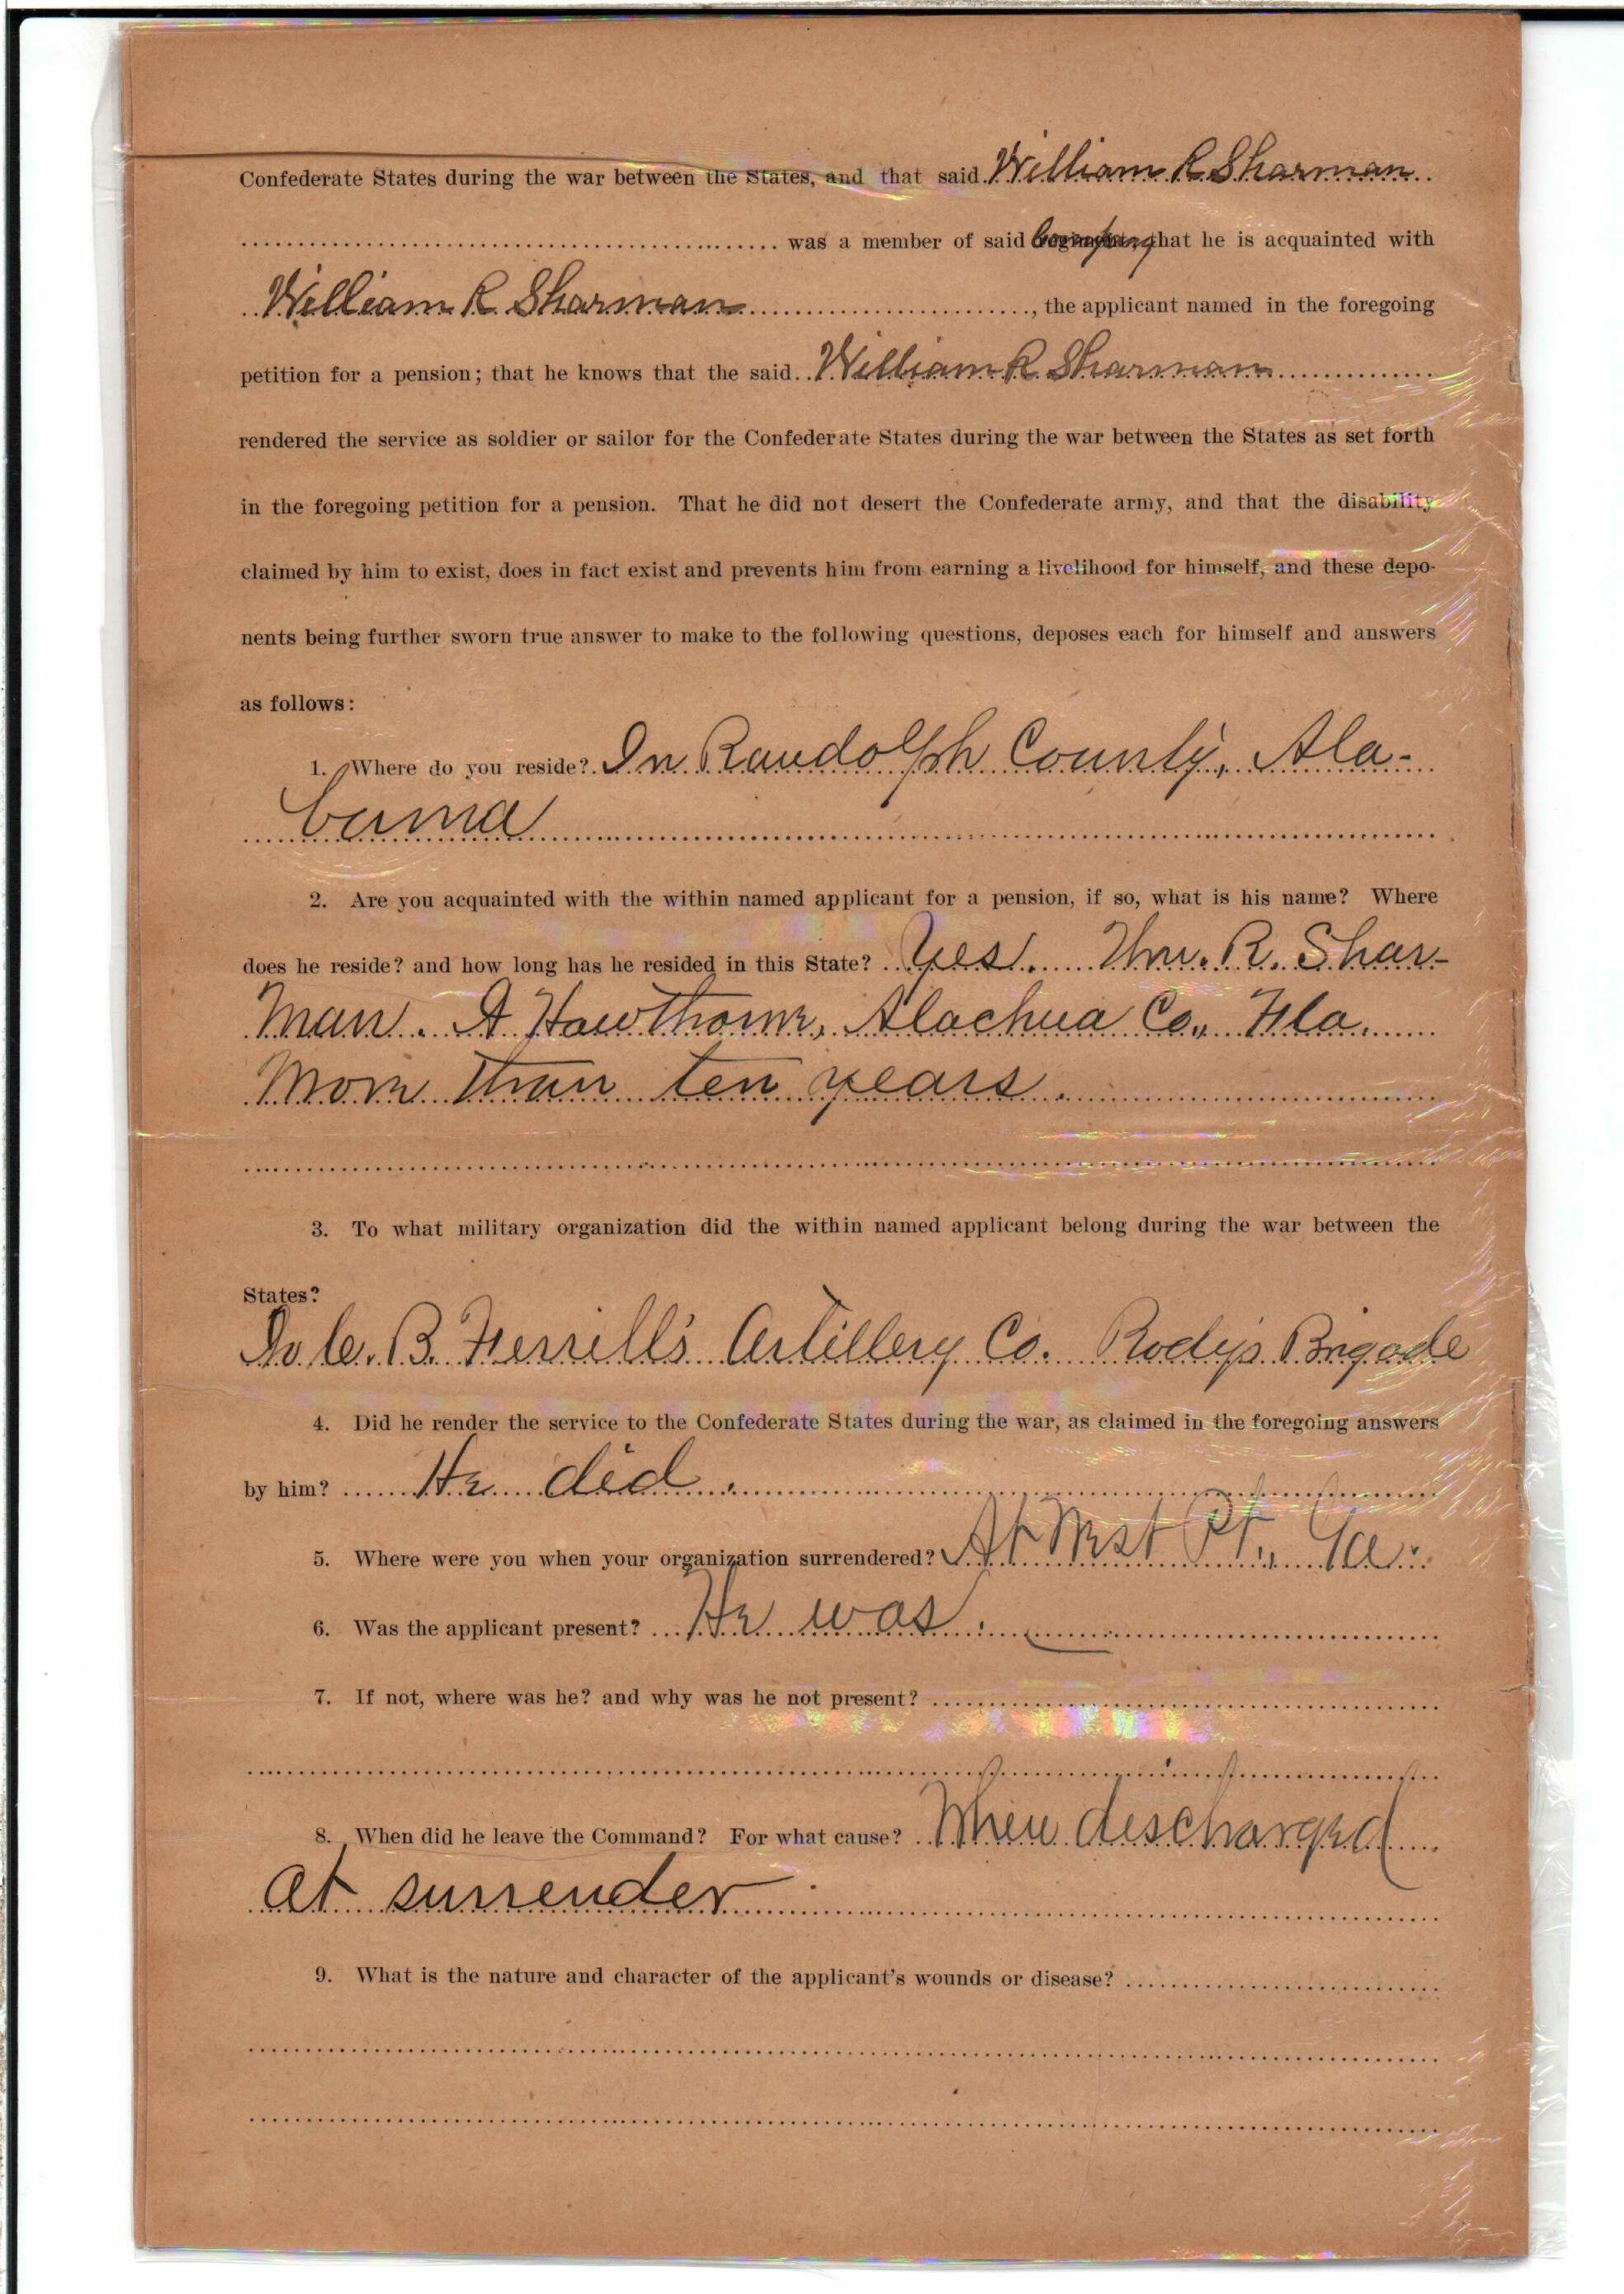 Confederate States during the war between the States, and that said William R Sharman
was a member of said Company that he is acquainted with
William R Sharman, the applicant named in the foregoing
petition for a pension; that he knows that the said William R Sharman
rendered the service as soldier or sailor for the Confederate States during the war between the States as set forth
in the foregoing petition for a pension. That he did not desert the Confederate army, and that the disability
claimed by him to exist, does in fact exist and prevents him from earning a livelihood for himself, and these depo-
nents being further sworn true answer to make to the following questions, deposes each for himself and answers
as follows:
1. Where do you reside? In Randolph County, Ala-
bama
2. Are you acquainted with the within named applicant for a pension, if so, what is his name? Where
does he reside? and how long has he resided in this State? Yes. Wm. R. Shar-
man. At Hawthorne, Alachua Co., Fla.
More than ten years.
3. To what military organization did the within named applicant belong during the war between the
States?
B. Ferrell's Artillery Co. Rody's Brigade
4. Did he render the service to the Confederate States during the war, as claimed in the foregoing answers
by him? He did.
5. Where were you when your organization surrendered? At West Pt., Ga.
6. Was the applicant present? He was.
7. If not, where was he? and why was he not present?
8. When did he leave the Command? For what cause? When discharged
at surrender.
9. What is the nature and character of the applicant's wounds or disease?